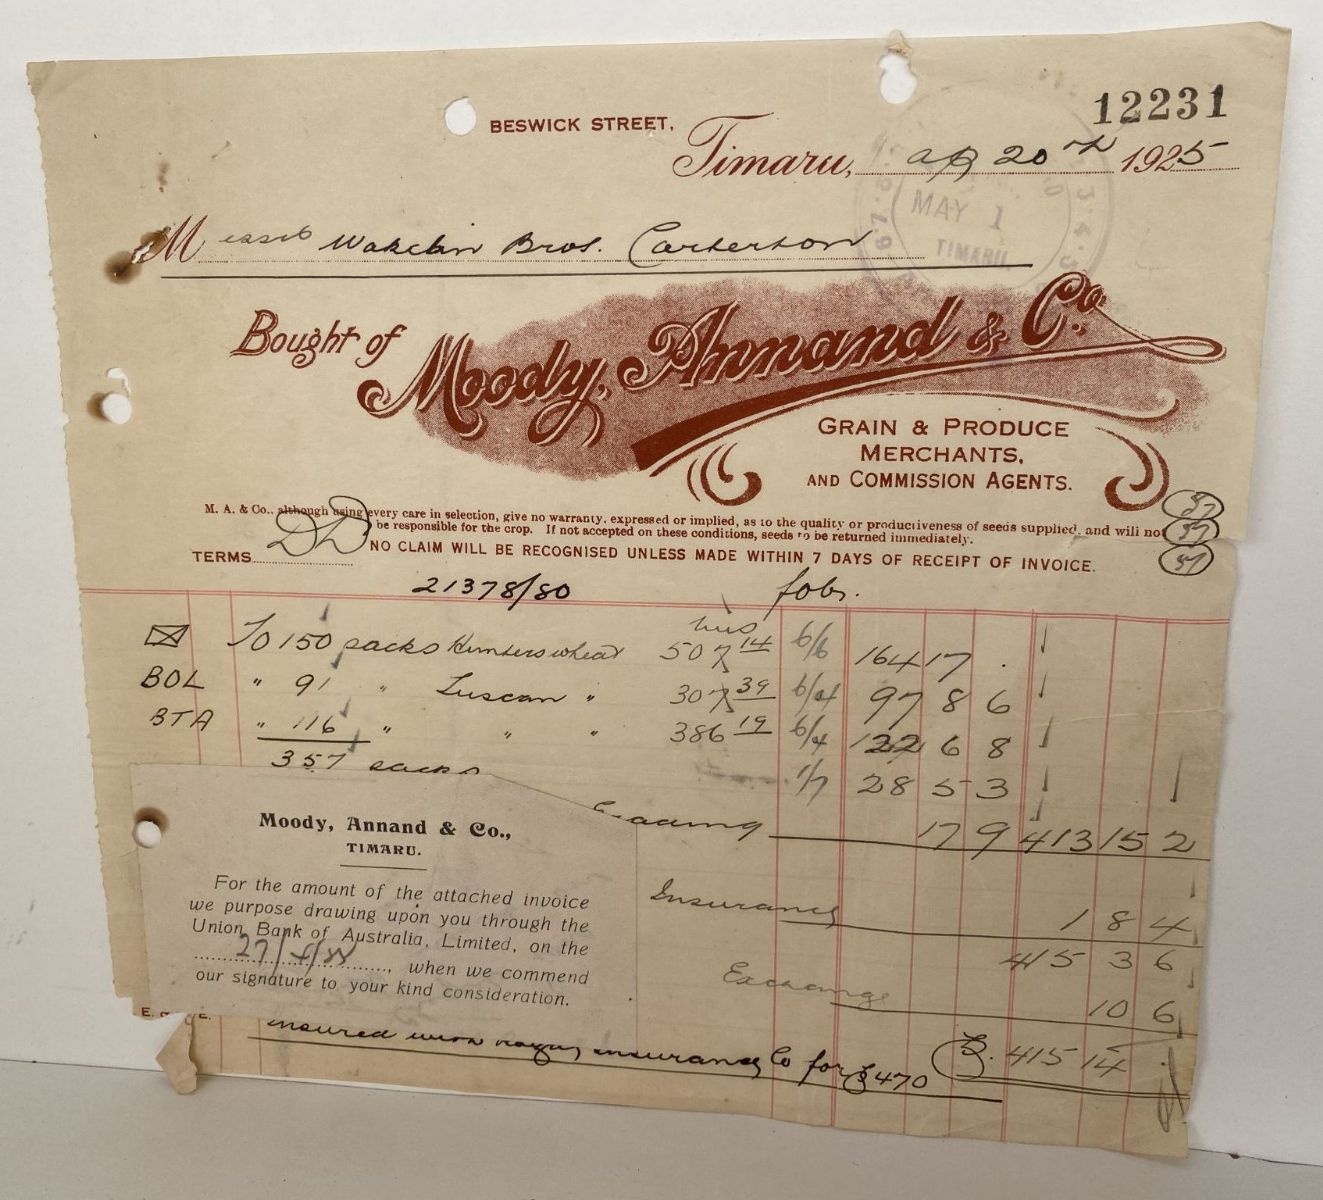 12231
BESWICK STREET,
Timaru, Ap 20th 1925
MAY 1
TIMARU.
Messrs Wakelin Bros. Carterton
Bought of Moody, Annand & Co.
GRAIN & PRODUCE
MERCHANTS,
AND COMMISSION AGENTS.
37
37
37
M. A. & Co., although using every care in selection, give no warranty, expressed or implied, as to the quality or productiveness of seeds supplied, and will not
be responsible for the crop. If not accepted on these conditions, seeds to be returned immediately.
TERMS DD NO CLAIM WILL BE RECOGNISED UNLESS MADE WITHIN 7 DAYS OF RECEIPT OF INVOICE.
21378/80 fobs.
bus
To 150 sacks Hunters wheat 507 14 6/6 164 17 .
BOL " 91 " Tuscan " 307 39 6/4 97 8 6
BTA " 116 " " " 386 19 6/4 122 6 8
357 sacks 1/7 28 5 3
17 9 413 15 2
Insurance 1 8 4
415 3 6
Exchange 10 6
£ 415 14
Moody, Annand & Co.,
TIMARU.
For the amount of the attached invoice
we purpose drawing upon you through the
Union Bank of Australia, Limited, on the
27/4/25, when we commend
our signature to your kind consideration.
E. & O.E.
insured with Insurance Co for £470